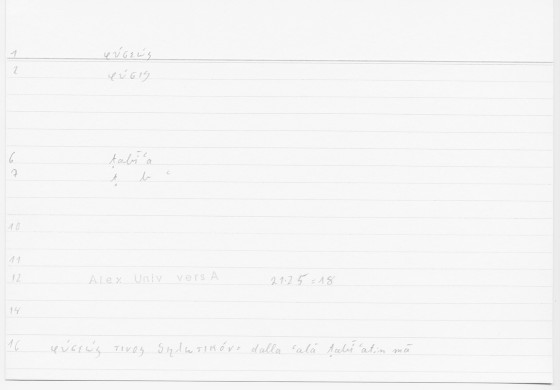 1 φύσεώς
2 φύσις
6 ṭabīʿa
7 ṭ b ʿ
10
11
12 Alex Univ vers A 21.25 = 18
14
16 φύσεώς τινος δηλωτικόν = dalla ʿalā ṭabīʿatin mā